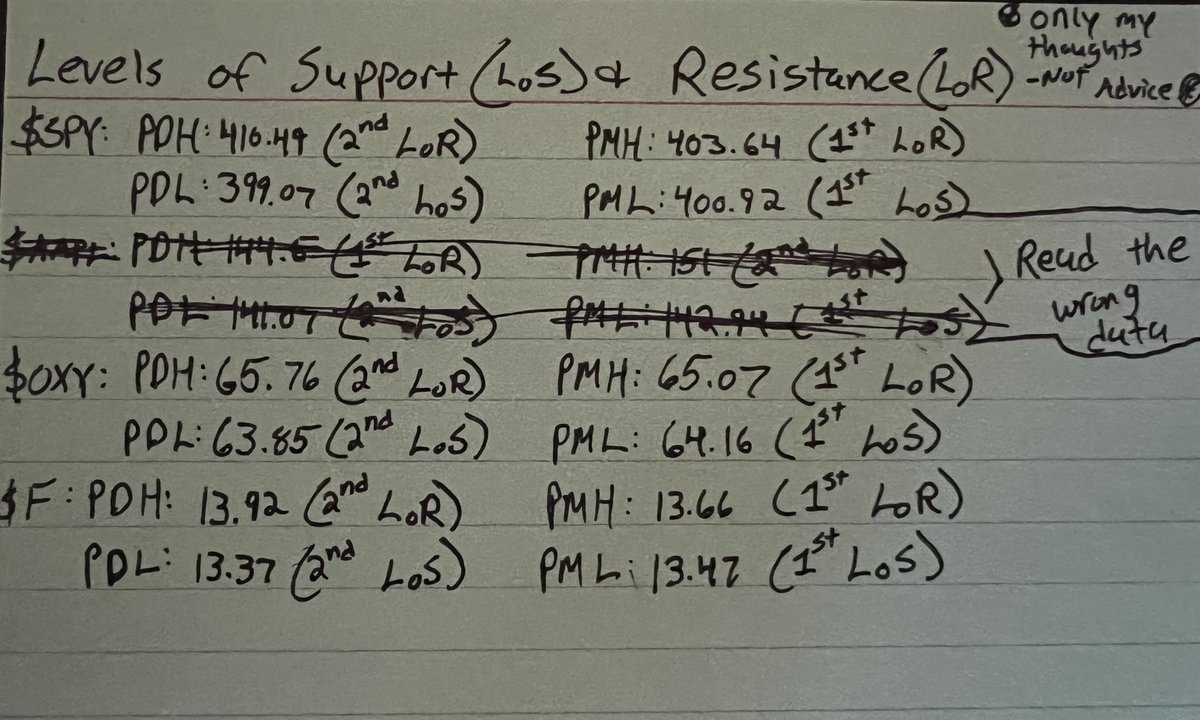 only my
thoughts
-Not Advice
Levels of Support (LoS) & Resistance (LoR)
$SPY: PDH: 410.49 (2nd LoR) PMH: 403.64 (1st LoR)
PDL: 399.07 (2nd LoS) PML: 400.92 (1st LoS)
$AAPL: PDH: 144.5 (1st LoR) PMH: 151 (2nd LoR)
PDL: 141.07 (2nd LoS) PML: 142.94 (1st LoS)
Read the
wrong
data
$OXY: PDH: 65.76 (2nd LoR) PMH: 65.07 (1st LoR)
PDL: 63.85 (2nd LoS) PML: 64.16 (1st LoS)
$F: PDH: 13.92 (2nd LoR) PMH: 13.66 (1st LoR)
PDL: 13.37 (2nd LoS) PML: 13.47 (1st LoS)